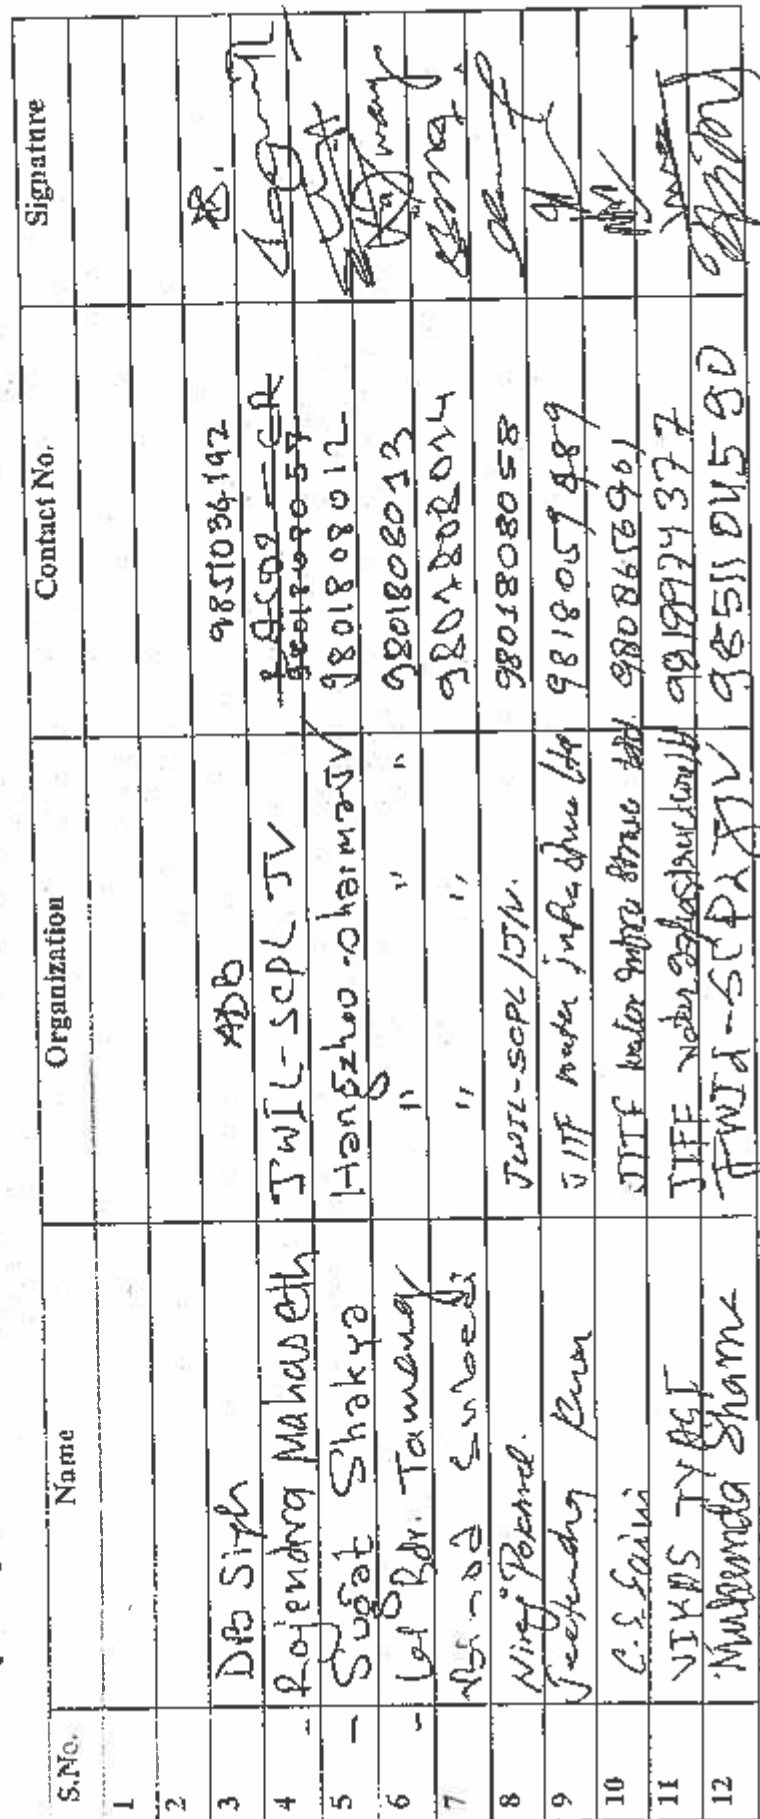 S.No. Name Organization Contact No. Signature
1
2
3 DB Singh ADB 9851034192
4 - Rajendra Mahaseth JWIL-SCPL JV
5 - Sugat Shakya Hangzhou-sharma JV 9801808012
6 - Lal Bdr. Tamang " " " 9801808013
7 Binod Subedi " " 9801808014
8 Niraj Pokhrel. JWIL-SCPL/J/V. 9801808058
9 Jeetendra Kumar JITF water infrastructure Ltd 9818057489
10 C.S. Saini JITF water infra struc Ltd. 9808656961
11 VIKAS TYAGI JITF water Infrastructure Ltd 9819974377
12 Mukunda Sharma JWIL-SCPL JV 9851104590